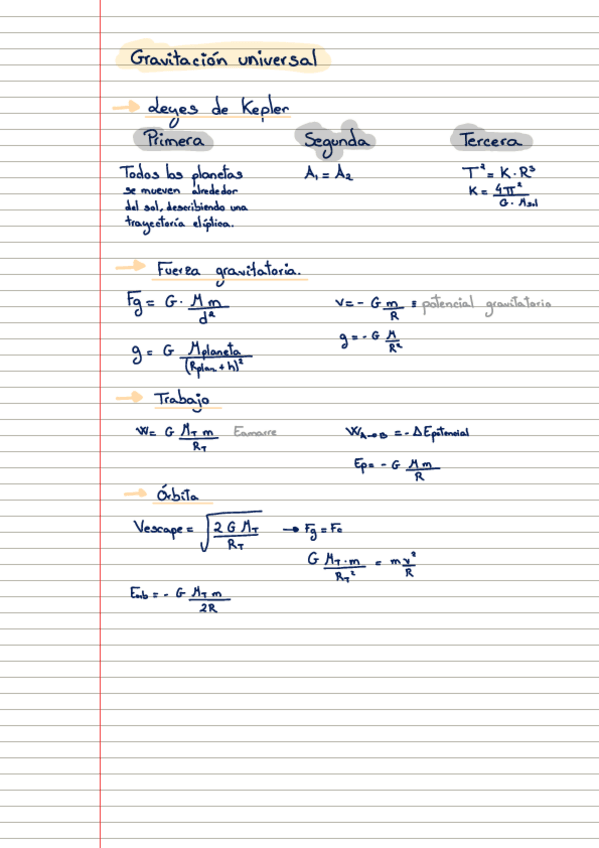 Gravitación universal
→ Leyes de Kepler
Primera Segunda Tercera
Todos los planetas
se mueven alrededor
del sol, describiendo una
trayectoria elíptica.
A₁ = A₂
T² = K · R³
K = 4π² / G · Msol
→ Fuerza gravitatoria.
Fg = G · M m / d²
V = - G m / R ≡ potencial gravitatorio
g = G Mplaneta / (Rplan + h)²
g = - G M / R²
→ Trabajo
W = G M_T m / R_T Eamarre
W_A→B = - ΔEpotencial
Ep = - G M m / R
→ Órbita
Vescape = √(2 G M_T / R_T) → Fg = Fc
G M_T · m / R_T² = m v² / R
Eorb = - G M_T m / 2R